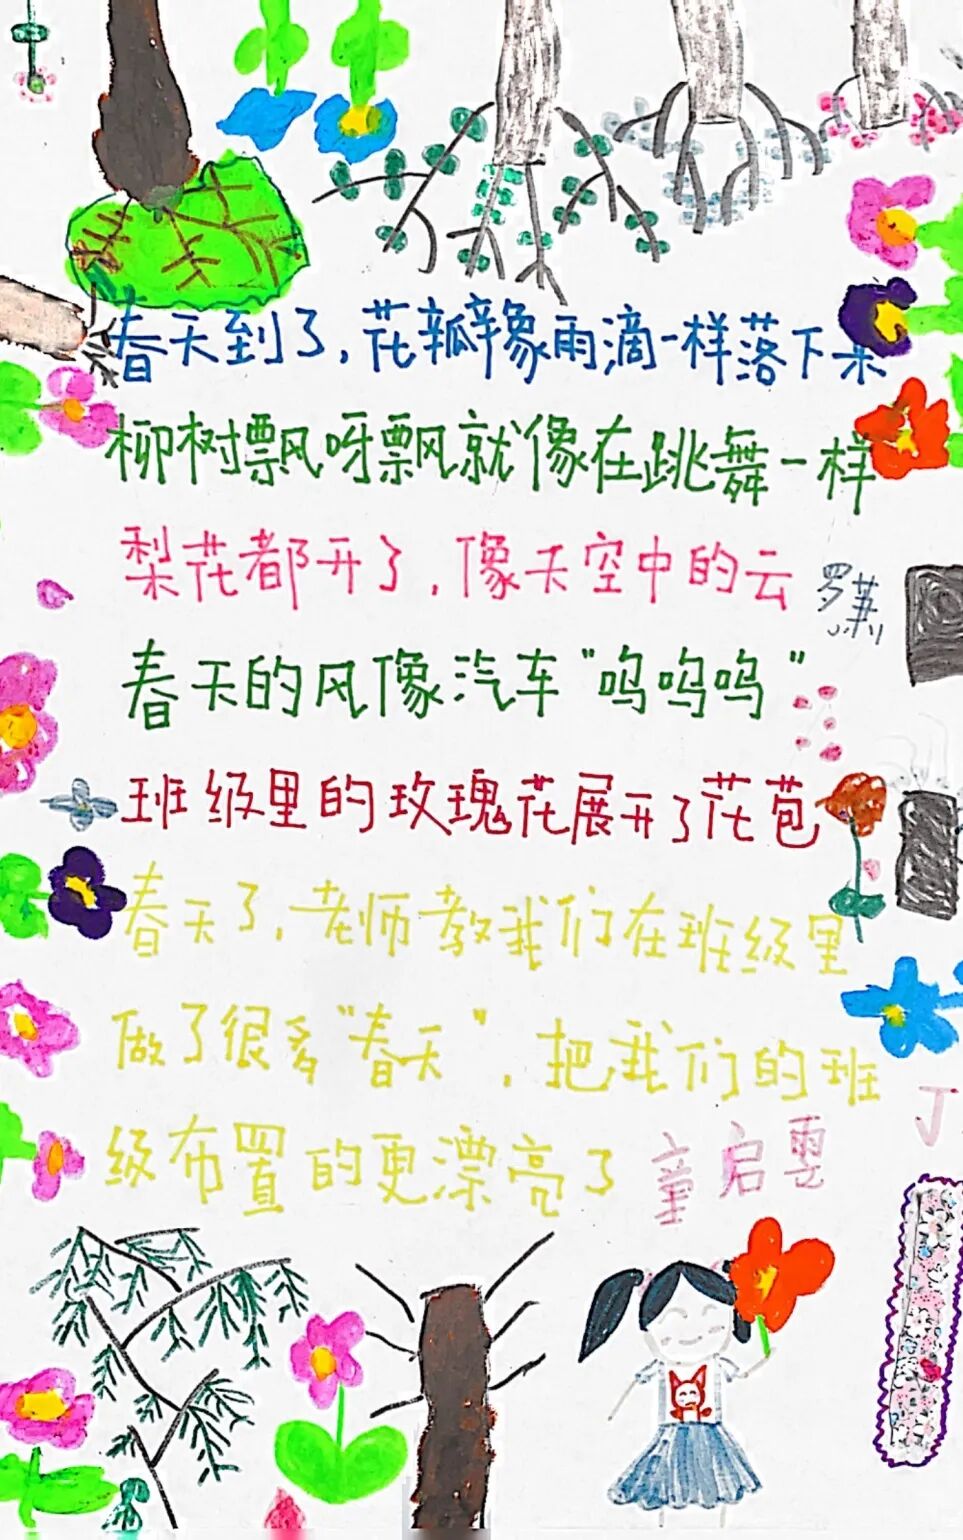 春天到了，花瓣像雨滴一样落下来
柳树飘呀飘就像在跳舞一样
梨花都开了，像天空中的云
罗萧
春天的风像汽车“呜呜呜”
班级里的玫瑰花展开了花苞
春天了，老师教我们在班级里
做了很多“春天”，把我们的班
级布置的更漂亮了
童启雯